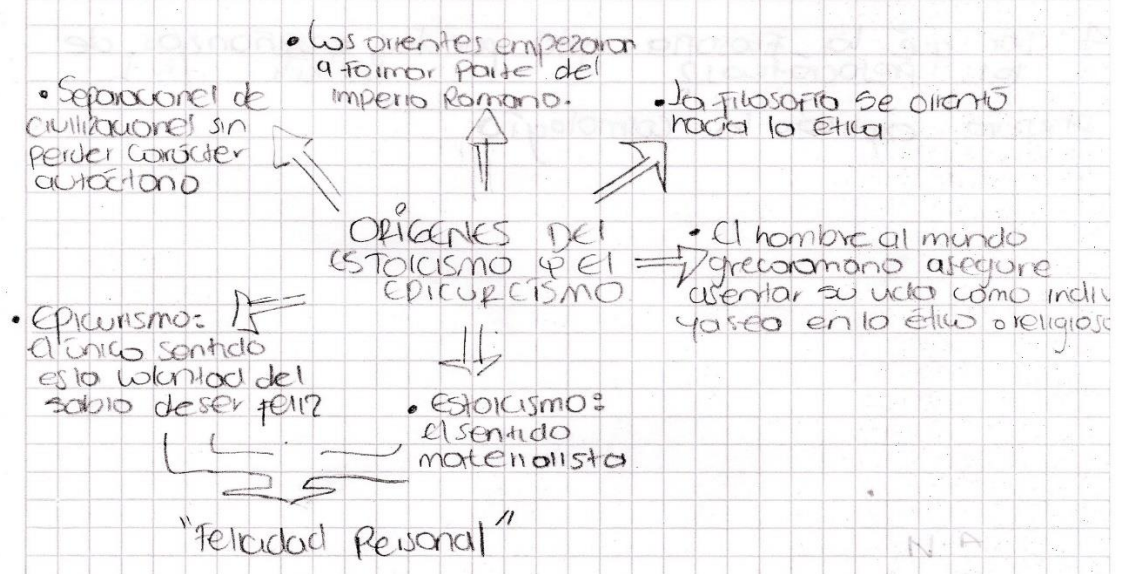 • Los orientes empezaron
a formar parte del
imperio Romano.
• Separaciones de
civilizaciones sin
perder carácter
autóctono
• La filosofía se orientó
hacia la ética
ORÍGENES DEL
ESTOICISMO Y EL
EPICUREÍSMO
• El hombre al mundo
grecoromano asegure
asentar su vida como indiv
ya sea en lo ético o religioso
• Epicurismo:
el único sentido
es la voluntad del
sabio de ser feliz
• Estoicismo:
el sentido
materialista
"Felicidad Personal"